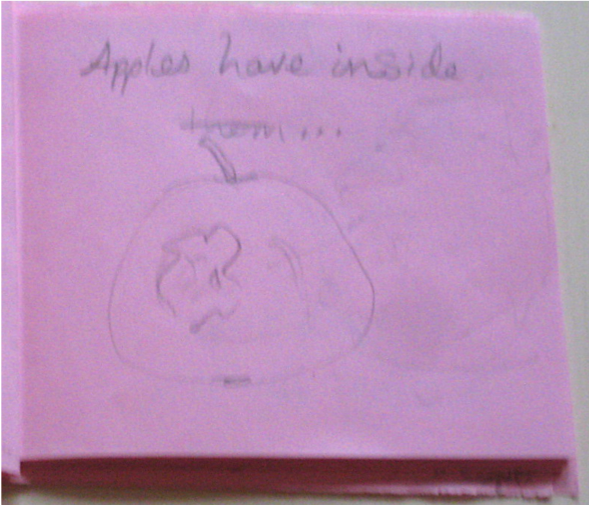 Apples have inside
them...